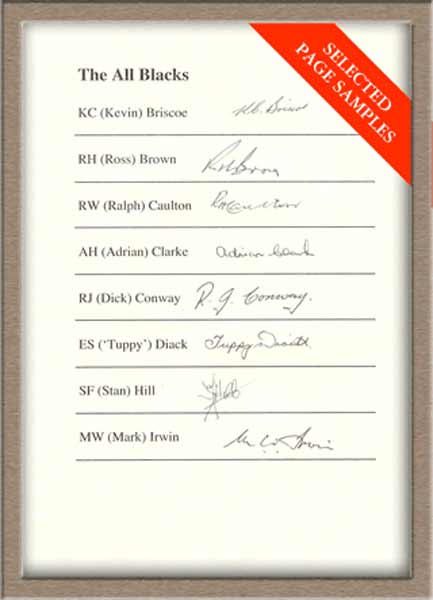 SELECTED
PAGE SAMPLES
The All Blacks
KC (Kevin) Briscoe K.C. Briscoe
RH (Ross) Brown R H Brown
RW (Ralph) Caulton RW Caulton
AH (Adrian) Clarke Adrian Clarke
RJ (Dick) Conway R. J. Conway.
ES (‘Tuppy’) Diack Tuppy Diack
SF (Stan) Hill
MW (Mark) Irwin M. W. Irwin